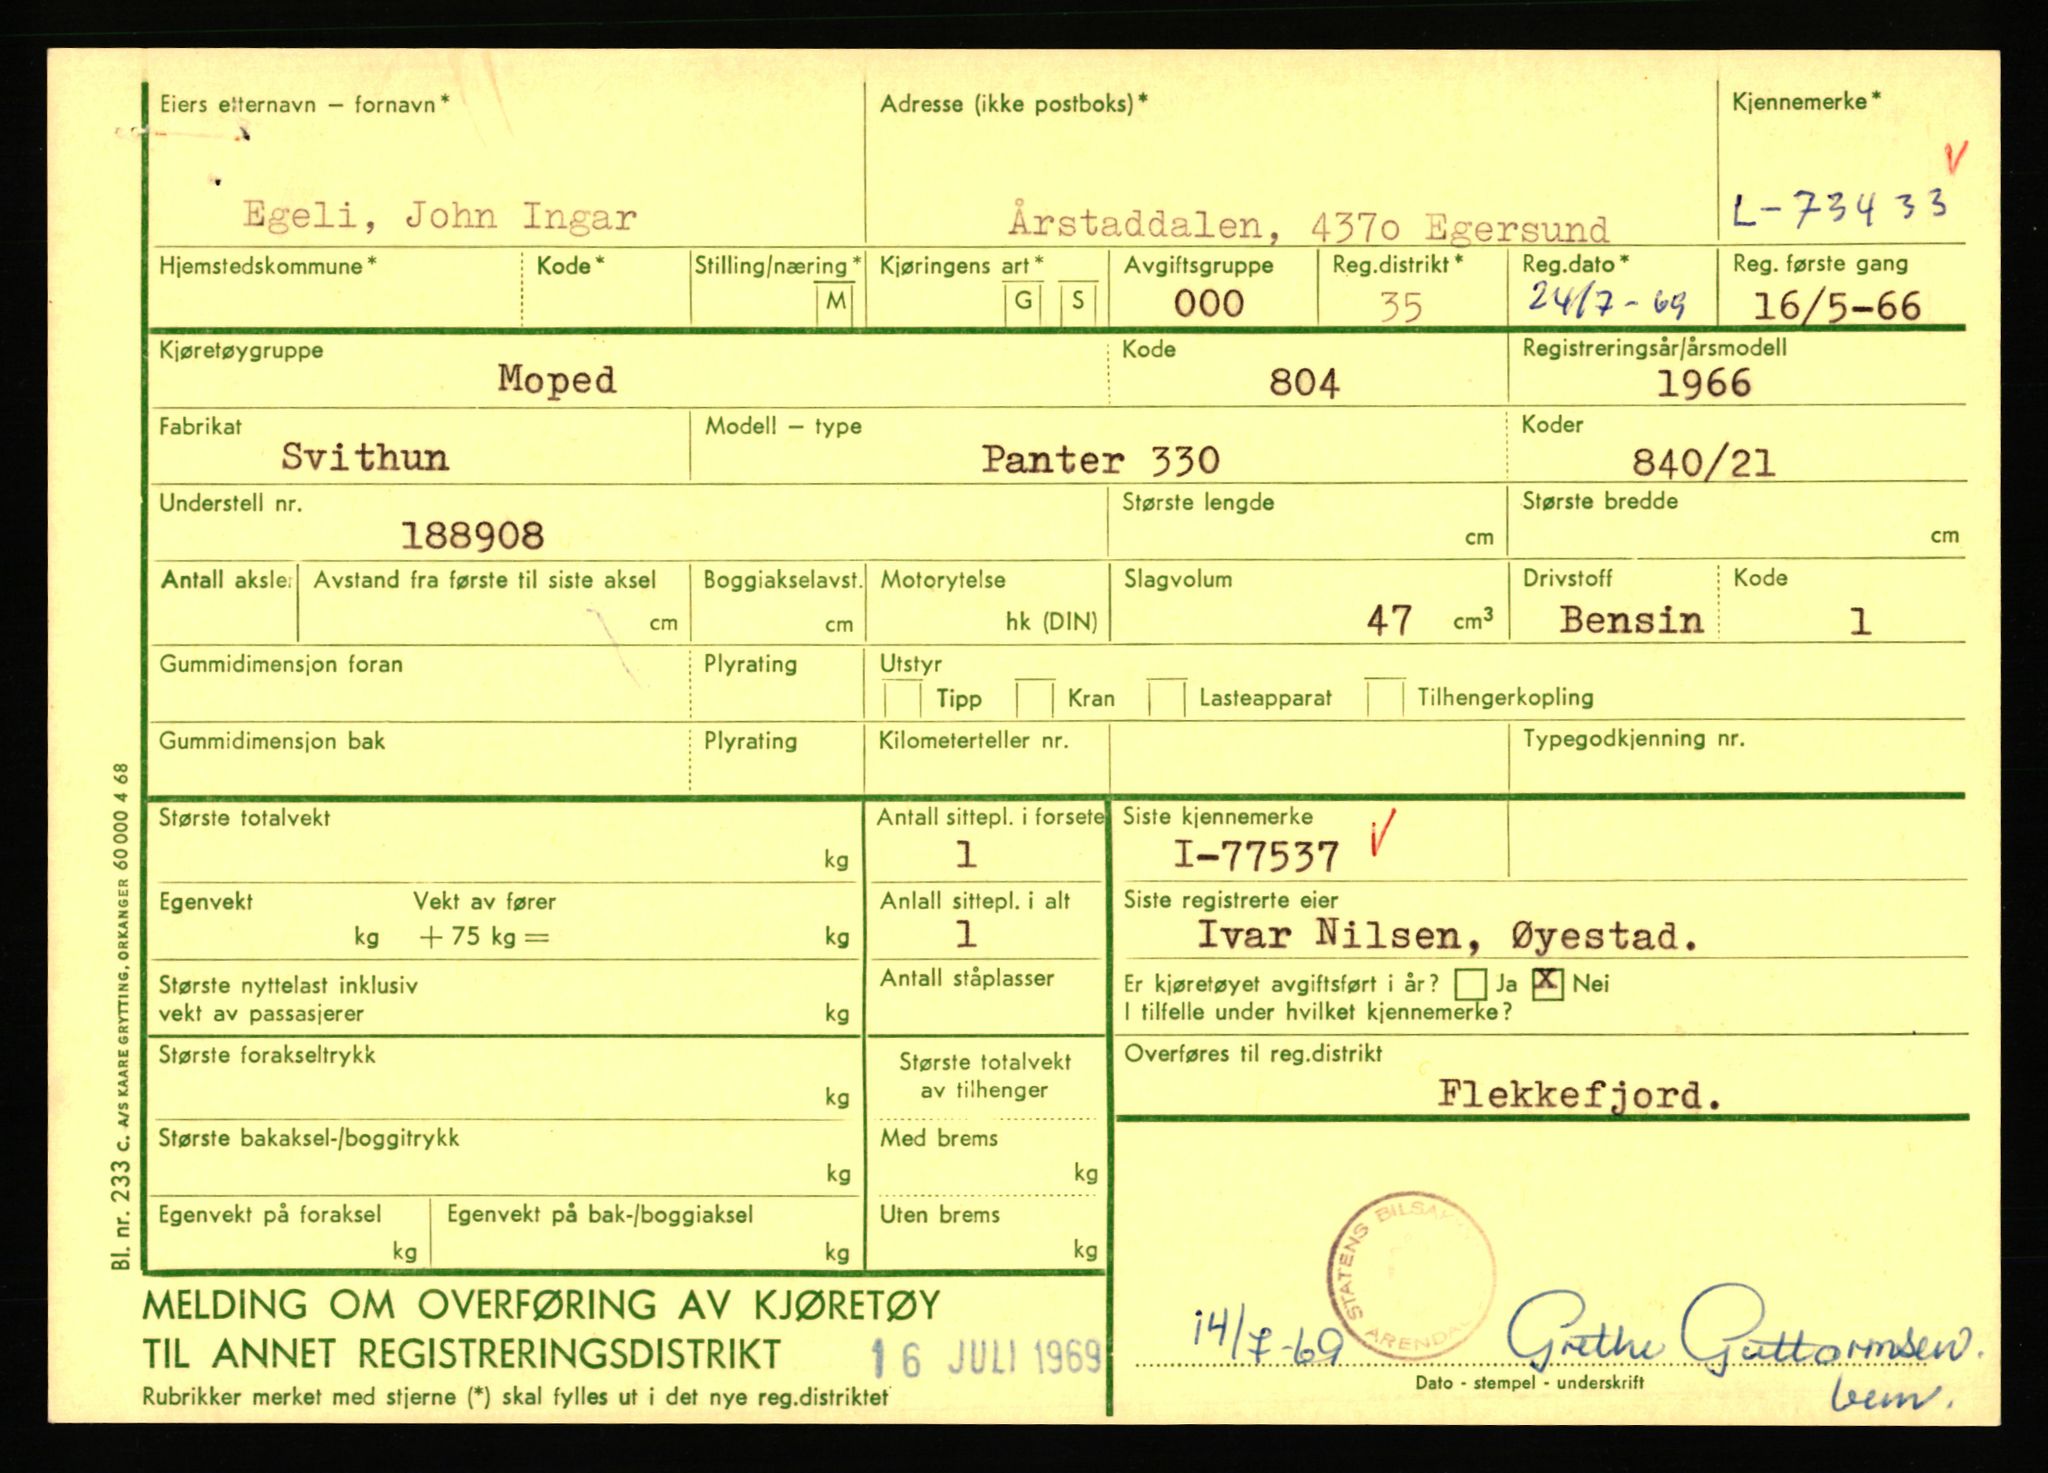 Eiers etternavn – fornavn*
Adresse (ikke postboks)*
Kjennemerke*
V
Egeli, John Ingar
Årstaddalen, 4370 Egersund
L-73433
Hjemstedskommune*
Kode*
Stilling/næring*
M
Kjøringens art*
G
S
Avgiftsgruppe
000
Reg.distrikt*
35
Reg.dato*
24/7-69
Reg. første gang
16/5-66
Kjøretøygruppe
Moped
Kode
804
Registreringsår/årsmodell
1966
Fabrikat
Svithun
Modell – type
Panter 330
Koder
840/21
Understell nr.
188908
Største lengde
cm
Største bredde
cm
Antall aksler
Avstand fra første til siste aksel
cm
Boggiakselavst.
cm
Motorytelse
hk (DIN)
Slagvolum
47 cm³
Drivstoff
Bensin
Kode
1
Gummidimensjon foran
Plyrating
Utstyr
Tipp
Kran
Lasteapparat
Tilhengerkopling
Gummidimensjon bak
Plyrating
Kilometerteller nr.
Typegodkjenning nr.
Største totalvekt
kg
Antall sittepl. i forsete
1
Siste kjennemerke
I-77537 V
Egenvekt
kg
Vekt av fører
+ 75 kg =
kg
Anlall sittepl. i alt
1
Siste registrerte eier
Ivar Nilsen, Øyestad.
Største nyttelast inklusiv
vekt av passasjerer
kg
Antall ståplasser
Er kjøretøyet avgiftsført i år? Ja X Nei
I tilfelle under hvilket kjennemerke?
Største forakseltrykk
kg
Største totalvekt
av tilhenger
Overføres til reg.distrikt
Flekkefjord.
Største bakaksel-/boggitrykk
kg
Med brems
kg
Egenvekt på foraksel
kg
Egenvekt på bak-/boggiaksel
kg
Uten brems
kg
MELDING OM OVERFØRING AV KJØRETØY
TIL ANNET REGISTRERINGSDISTRIKT
16 JULI 1969
Rubrikker merket med stjerne (*) skal fylles ut i det nye reg.distriktet
STATENS
ARENDAL
14/7-69
Grethe Guttormsen.
Dato - stempel - underskrift
Bl. nr. 233 C. A/S KAARE GRYTTING, ORKANGER 60 000 4 68